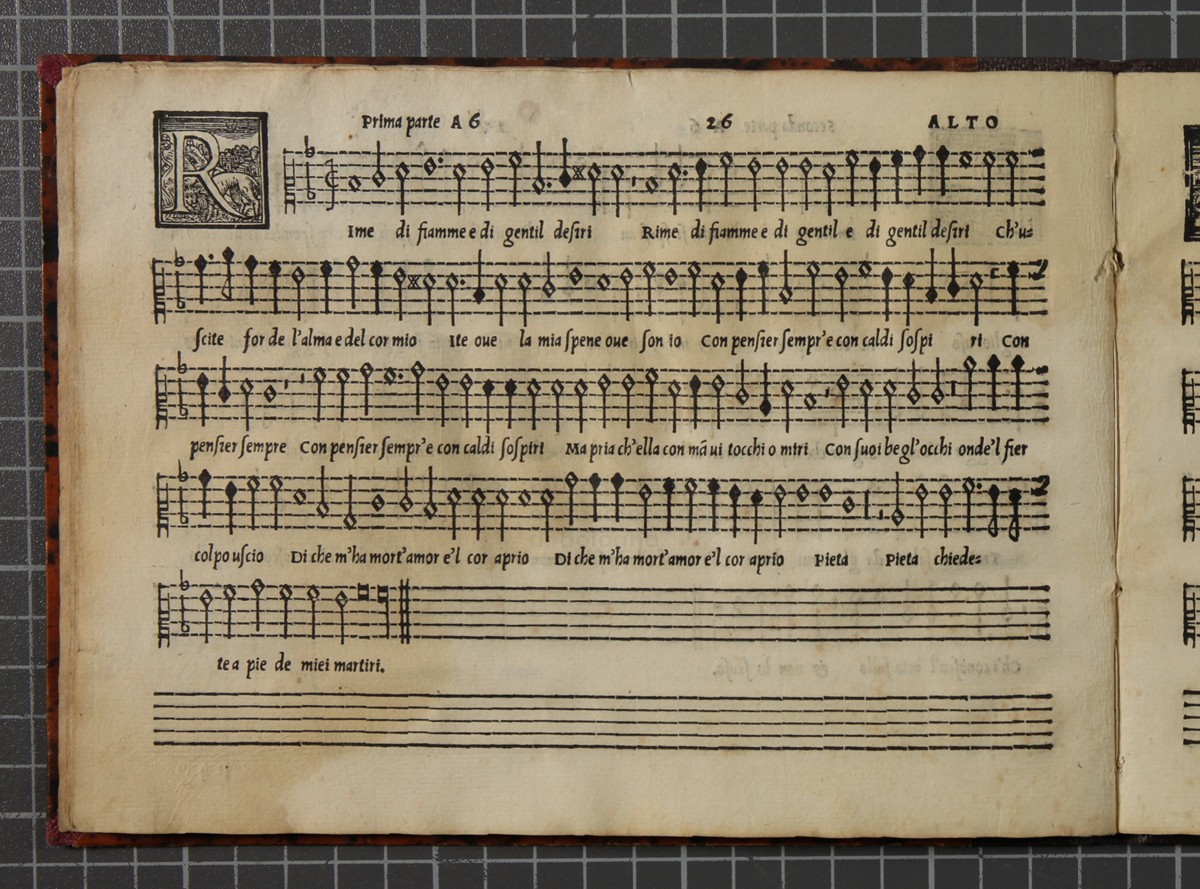 Prima parte A 6 26 ALTO
RIme di fiamme e di gentil deſiri Rime di fiamme e di gentil e di gentil deſiri Ch'u=
ſcite for de l'alma e del cor mio Ite oue la mia ſpene oue ſon io Con penſier ſempr'e con caldi ſoſpi ri Con
penſier ſempre Con penſier ſempr'e con caldi ſoſpiri Ma pria ch'ella con mā ui tocchi o miri Con ſuoi begl'occhi onde'l fier
colpo uſcio Di che m'ha mort'amor e'l cor aprio Di che m'ha mort'amor e'l cor aprio Pieta Pieta chiede=
te a pie de miei martiri.